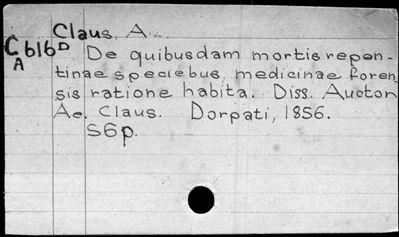 Claus, A.
C616D
A
De quibusdam mortis repen-
tinae speciebus, medicinae foren
sis ratione habita. Diss. Auctor
Ae. Claus. Dorpati, 1856.
56p.